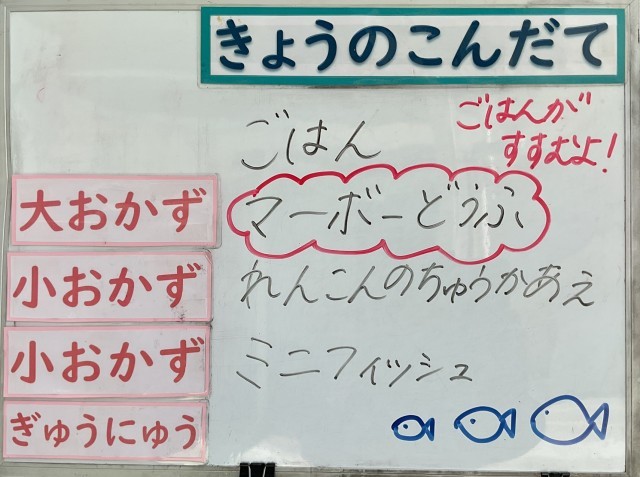 きょうのこんだて
ごはん
ごはんが
すすむよ!
大おかず マーボーどうふ
小おかず れんこんのちゅうかあえ
小おかず ミニフィッシュ
ぎゅうにゅう